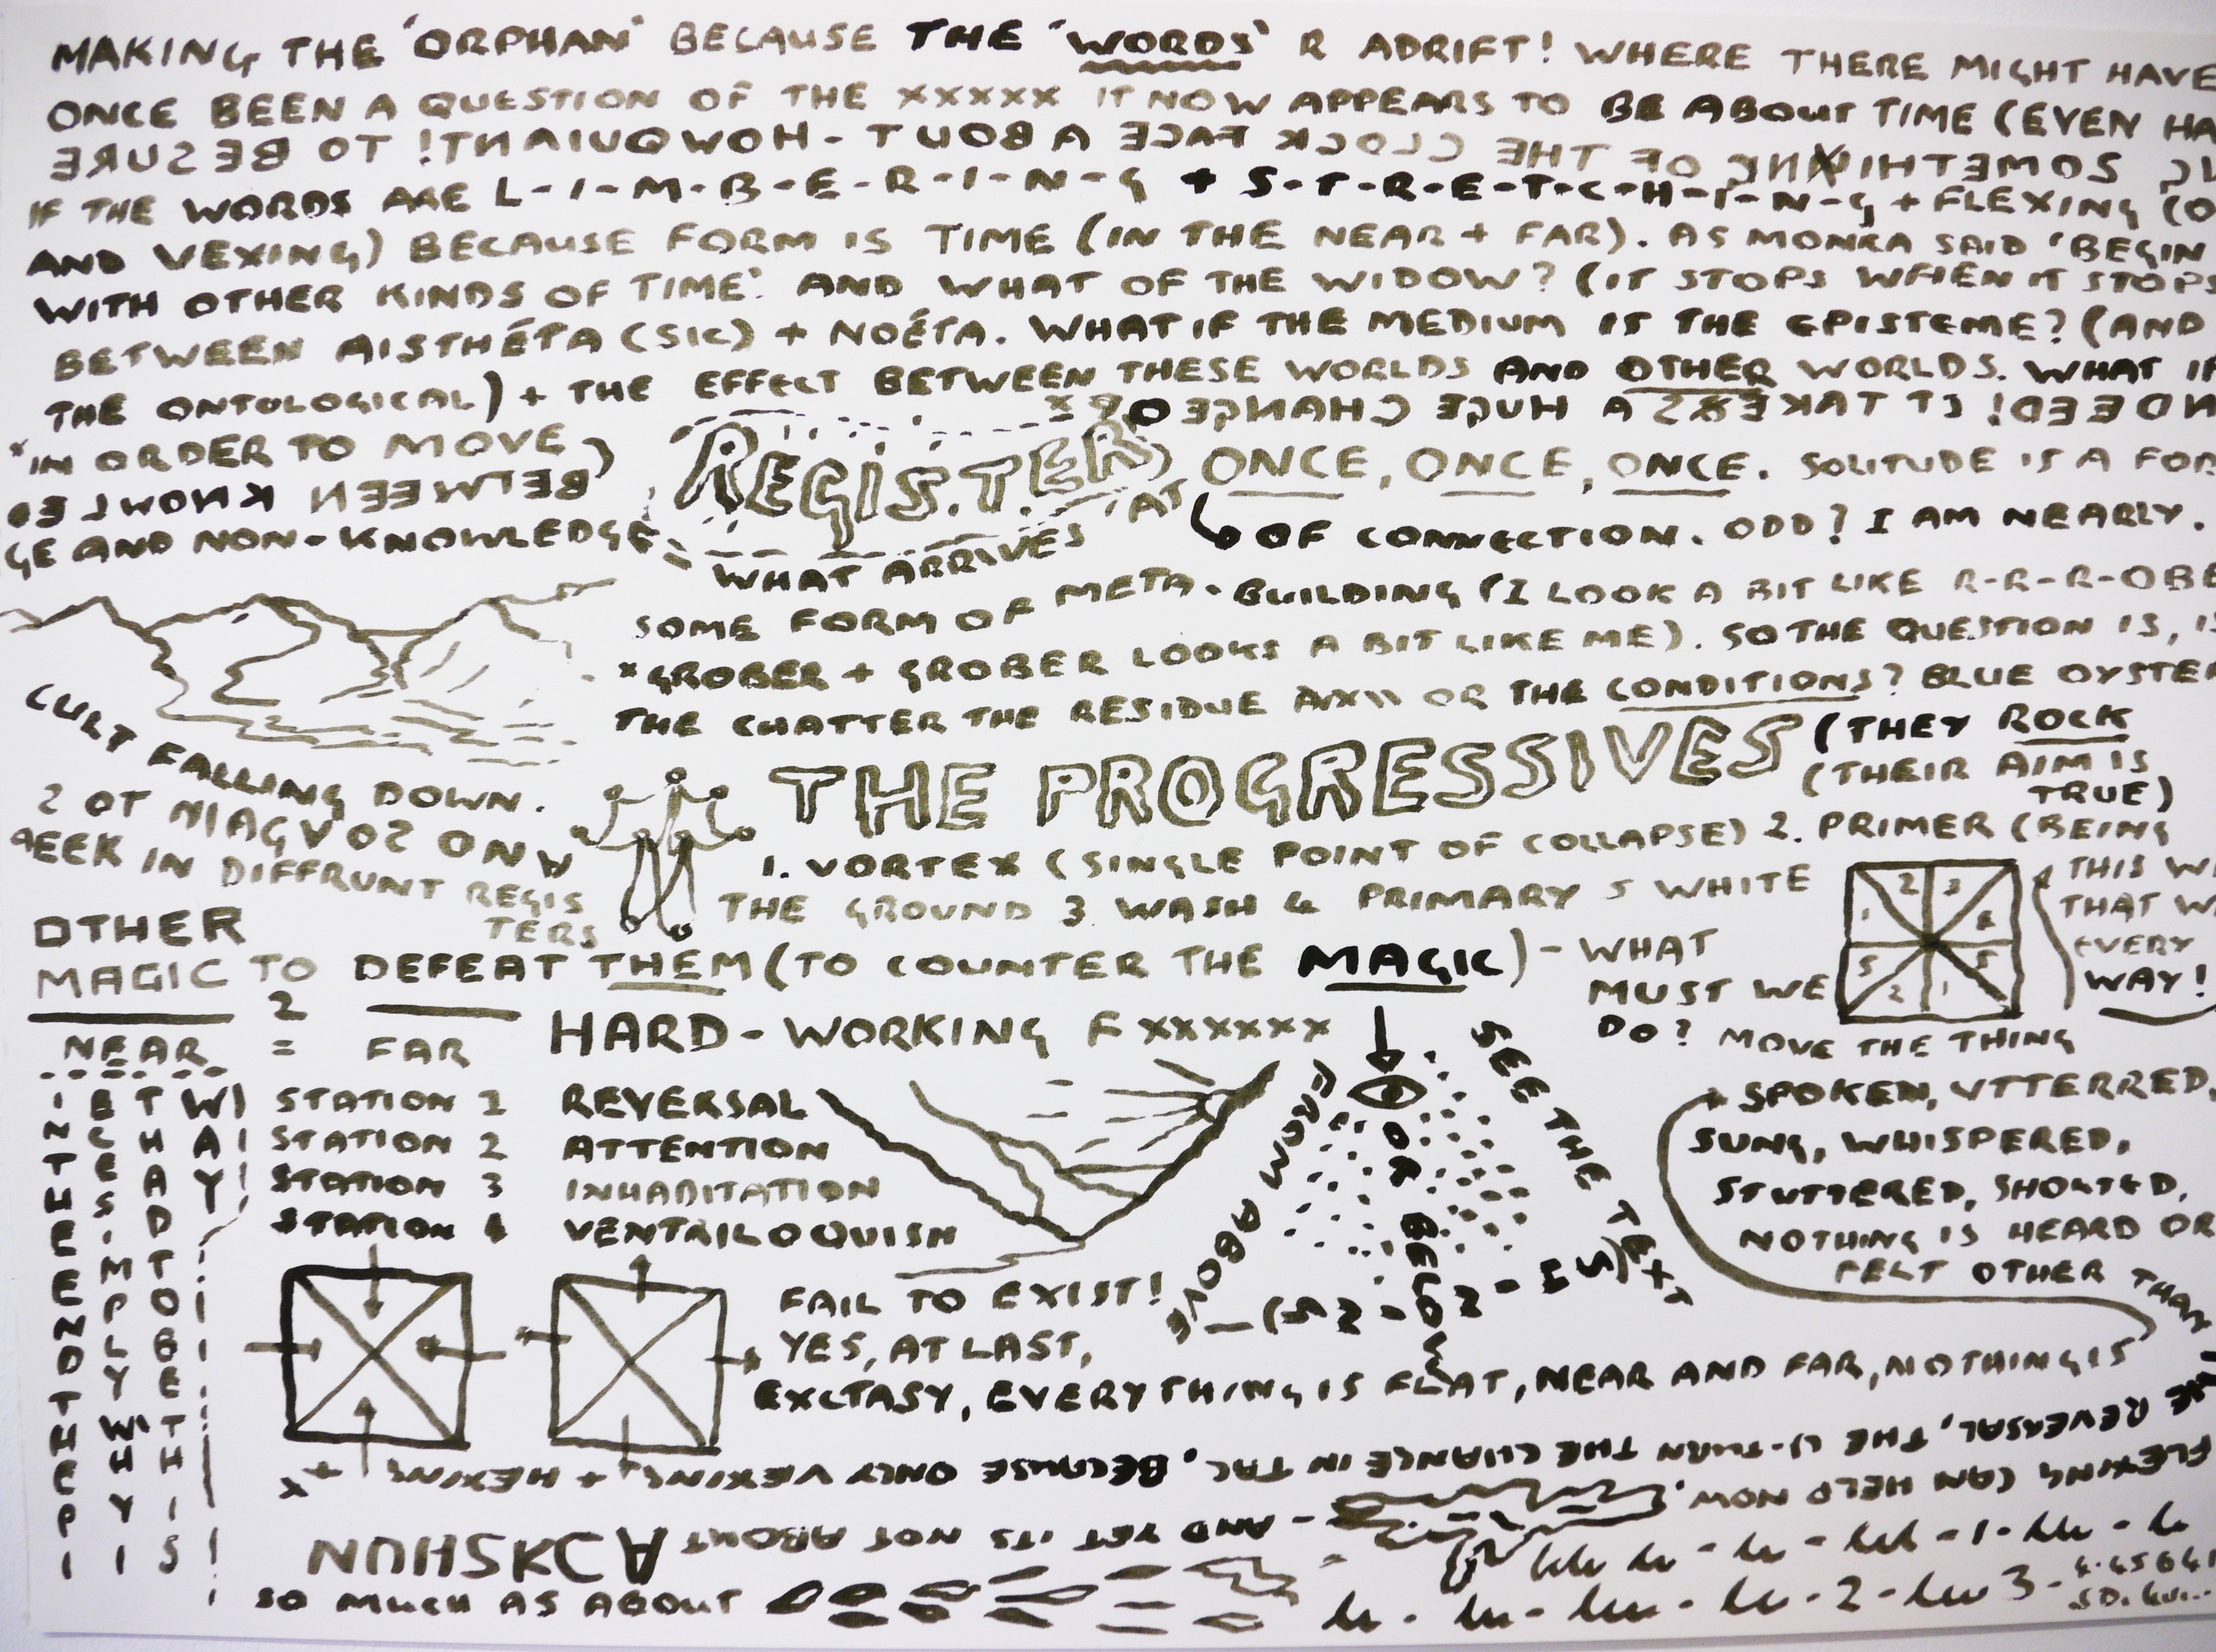 MAKING THE 'ORPHAN' BECAUSE THE 'WORDS' R ADRIFT! WHERE THERE MIGHT HAVE
ONCE BEEN A QUESTION OF THE XXXXX IT NOW APPEARS TO BE ABOUT TIME (EVEN HA
SOMETHING OF THE CLOCK FACE ABOUT - HOWQUIANT! TO BE SURE
IF THE WORDS ARE L-I-M-B-E-R-I-N-G + S-T-R-E-T-C-H-I-N-G + FLEXING (O
AND VEXING) BECAUSE FORM IS TIME (IN THE NEAR + FAR). AS MONKA SAID 'BEGIN
WITH OTHER KINDS OF TIME'. AND WHAT OF THE WIDOW? (IT STOPS WHEN IT STOPS
BETWEEN AISTHÉTA (SIC) + NOÉTA. WHAT IF THE MEDIUM IS THE EPISTEME? (AND
THE ONTOLOGICAL) + THE EFFECT BETWEEN THESE WORLDS AND OTHER WORLDS. WHAT IF
NDEED! IT TAKES A HUGE CHANGE OF
*IN ORDER TO MOVE
BETWEEN KNOWLED
GE AND NON-KNOWLEDGE
REGIS.TER
WHAT ARRIVES AT
ONCE, ONCE, ONCE. SOLITUDE IS A FOR
OF CONNECTION. ODD? I AM NEARLY.
SOME FORM OF META-BUILDING (I LOOK A BIT LIKE R-R-R-OBE
*GROBER + GROBER LOOKS A BIT LIKE ME). SO THE QUESTION IS, IS
THE CHATTER THE RESIDUE OR THE CONDITIONS? BLUE OYSTER
CULT FALLING DOWN.
NO SO VGAIN TO S
AEEK IN DIFFRUNT REGIS
TERS
THE PROGRESSIVES (THEY ROCK
(THEIR AIM IS
TRUE)
1. VORTEX (SINGLE POINT OF COLLAPSE) 2. PRIMER (BEING
THE GROUND 3 WASH 4 PRIMARY 5 WHITE
1 2 3 4
5 2 1 5
THIS W
THAT W
EVERY
WAY!
OTHER
MAGIC TO DEFEAT THEM (TO COUNTER THE MAGIC) - WHAT
MUST WE
DO? MOVE THE THING
2
NEAR = FAR
HARD-WORKING F XXXXXX
STATION 1 REVERSAL
STATION 2 ATTENTION
STATION 3 INHABITATION
STATION 4 VENTRILOQUISH
IN THE END THE PI
ECES IMPLY WHY I
THAD TO BE THIS
WAY!
SEE THE TEXT
SPOKEN, UTTERRED,
SUNG, WHISPERED,
STUTTERED, SHOUTED,
NOTHING IS HEARD OR
FELT OTHER THAN
FAIL TO EXIST!
YES, AT LAST,
EXCTASY, EVERYTHING IS FLAT, NEAR AND FAR, NOTHING IS
THE REVERSAL, THE U-TURN THE CHANGE IN TAC. BECAUSE ONLY VEXING + HEXING +
FLEXING CAN HELP NOW.
- AND YET ITS NOT ABOUT
SO MUCH AS ABOUT